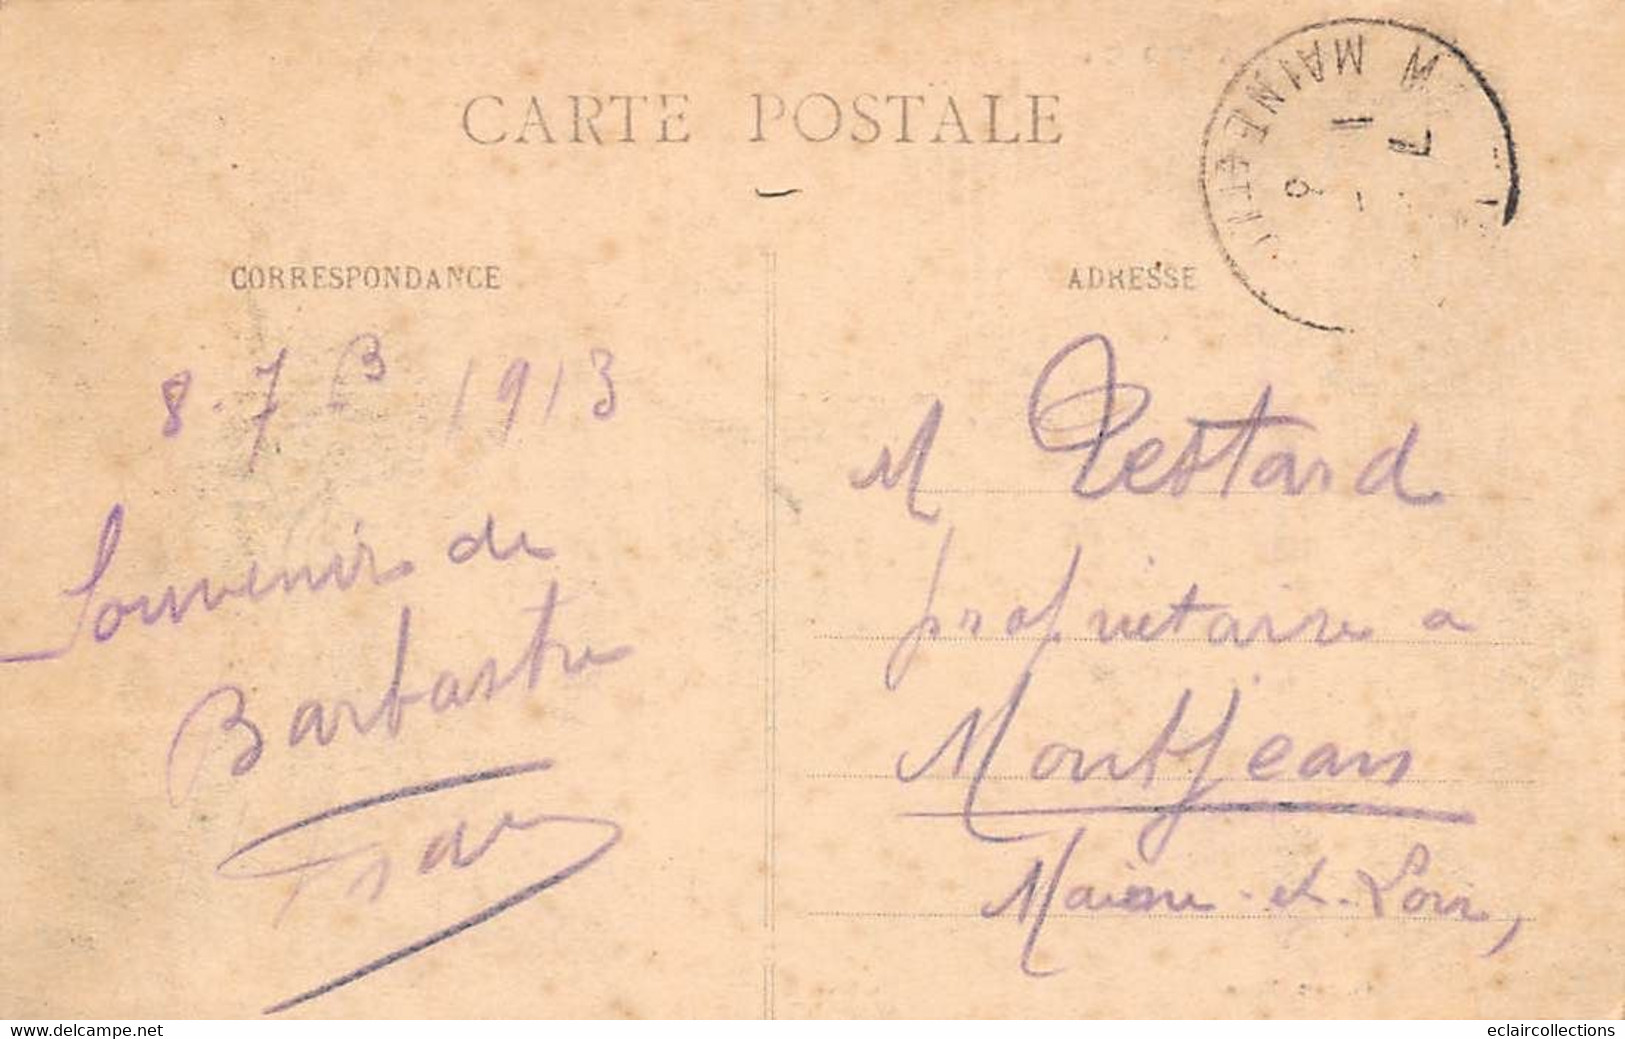 CARTE POSTALE
CORRESPONDANCE
ADRESSE
MAINE
8. 7 B 1913
Souvenir de
Barbastre
M Testard
propriétaire a
MontJean
Maine-et-Loire,
www.delcampe.net
eclaircollections